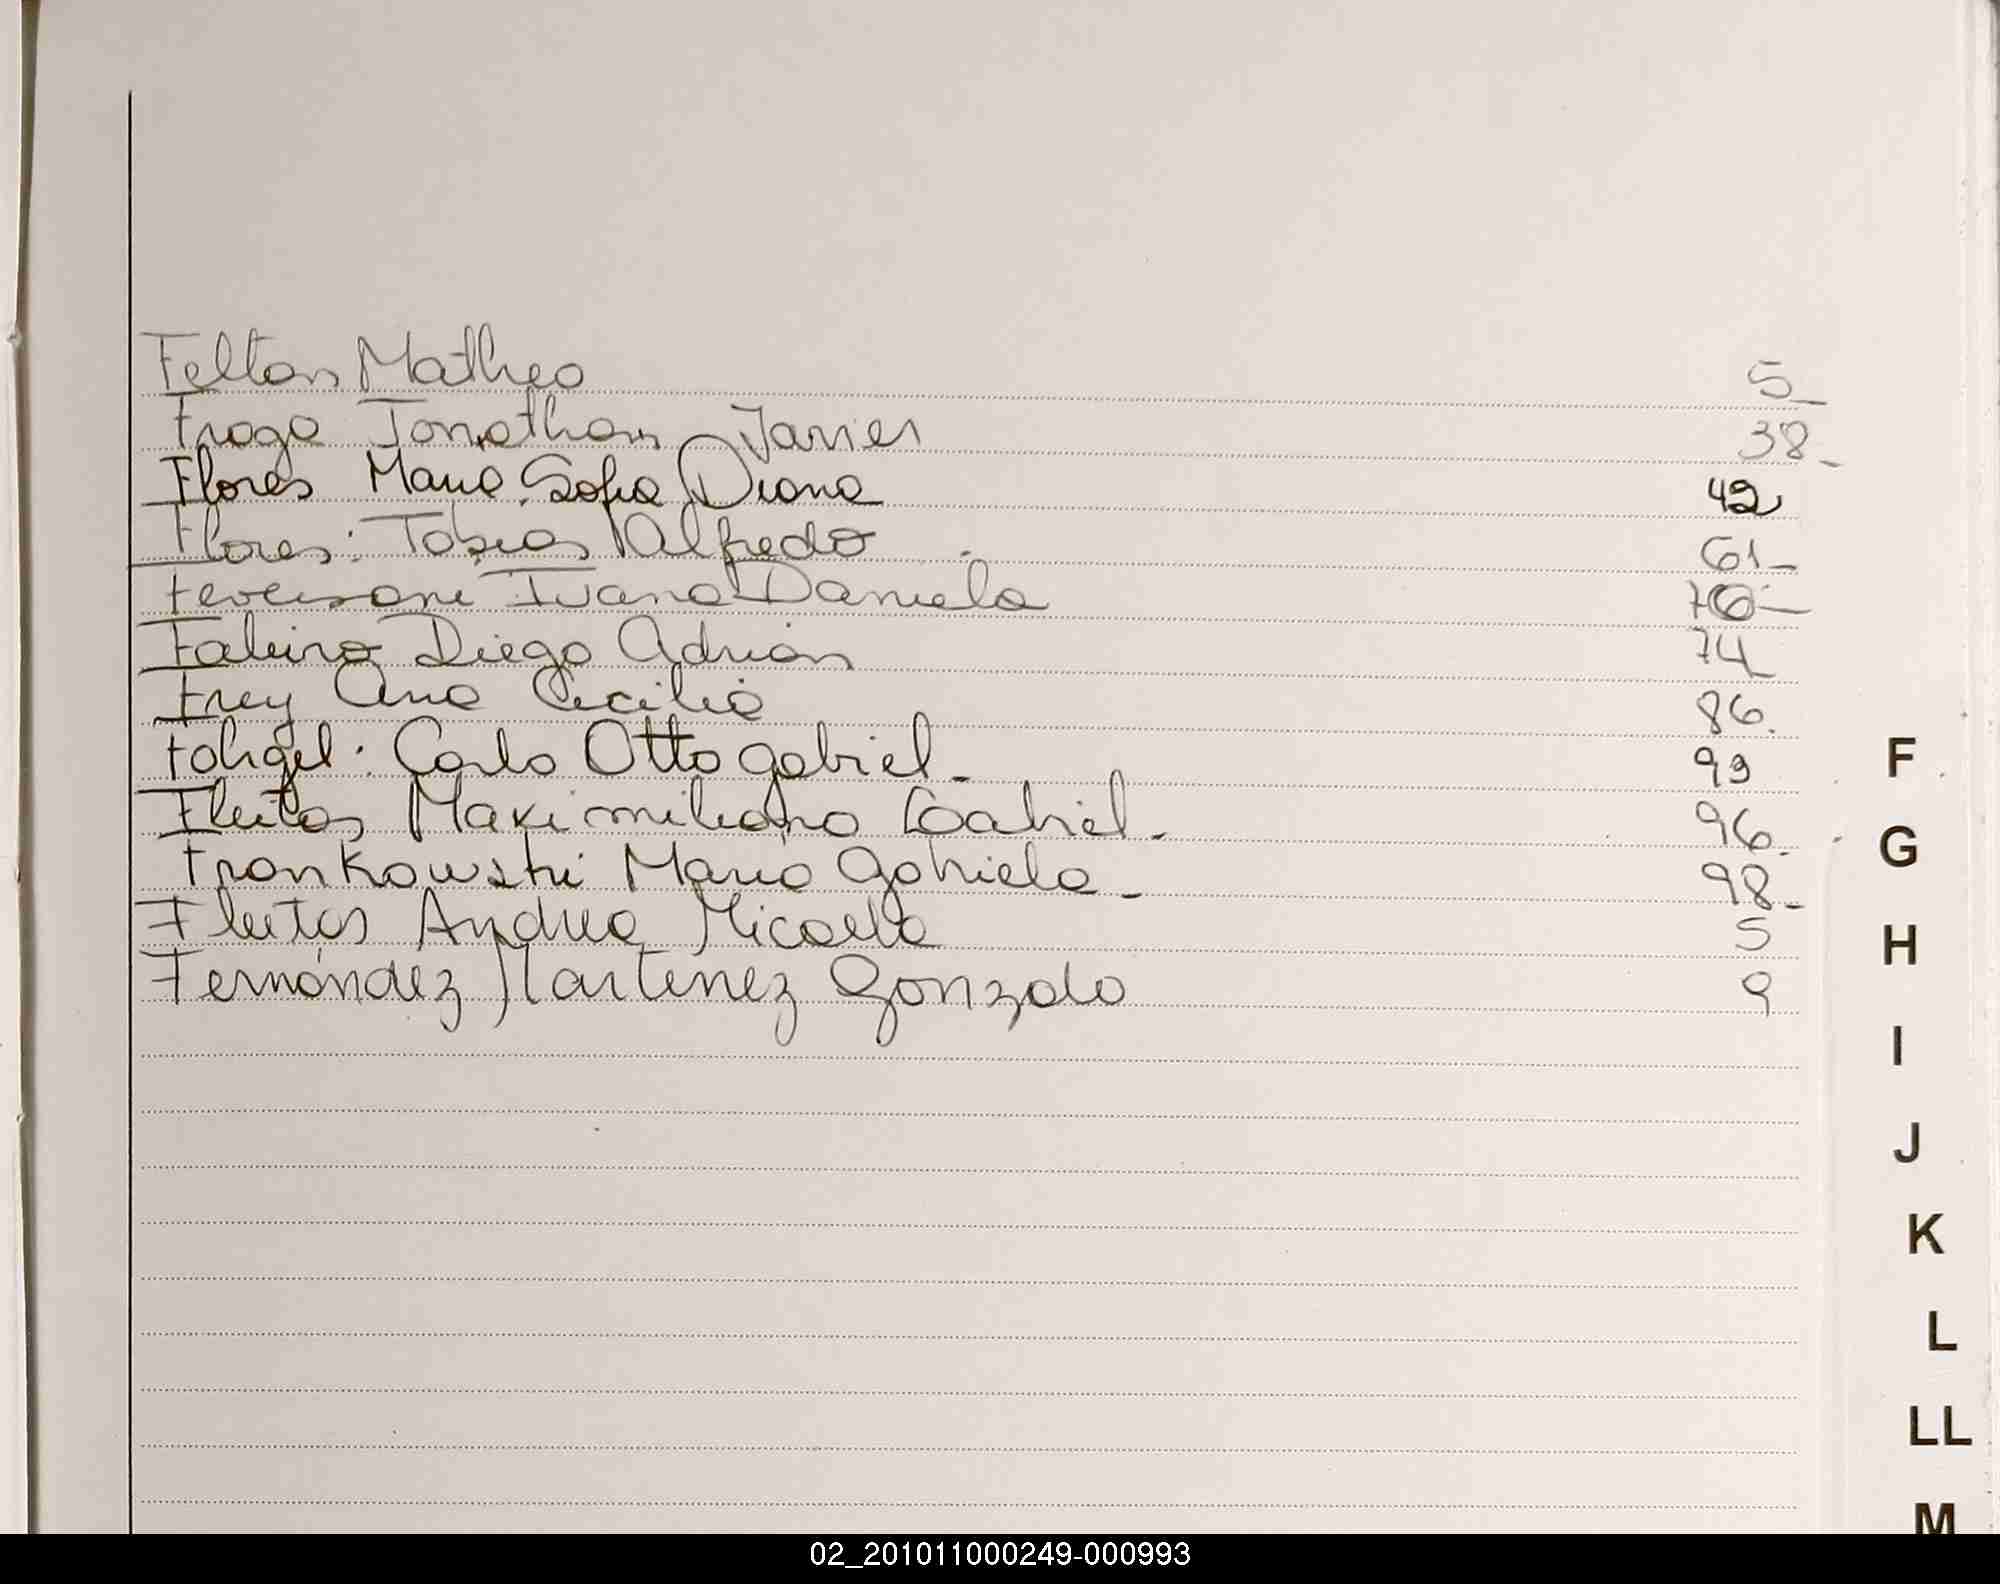 Feltan Matheo 5
Fraga Jonathan Javier 38
Flores Maria Sofia Diana 42
Flores: Tobias Alfredo 61
Ivana Daniela 70
Diego Adrian 74
Frey Ana Cecilia 86
Carlo Otto Gabriel 93
Fleitas Maximiliano Gabriel 96
Frankowski Maria Gabriela 98
Fleitas Andrea Micaela 5
Fernández Martinez Gonzalo 9
F
G
H
I
J
K
L
LL
M
02_201011000249-000993